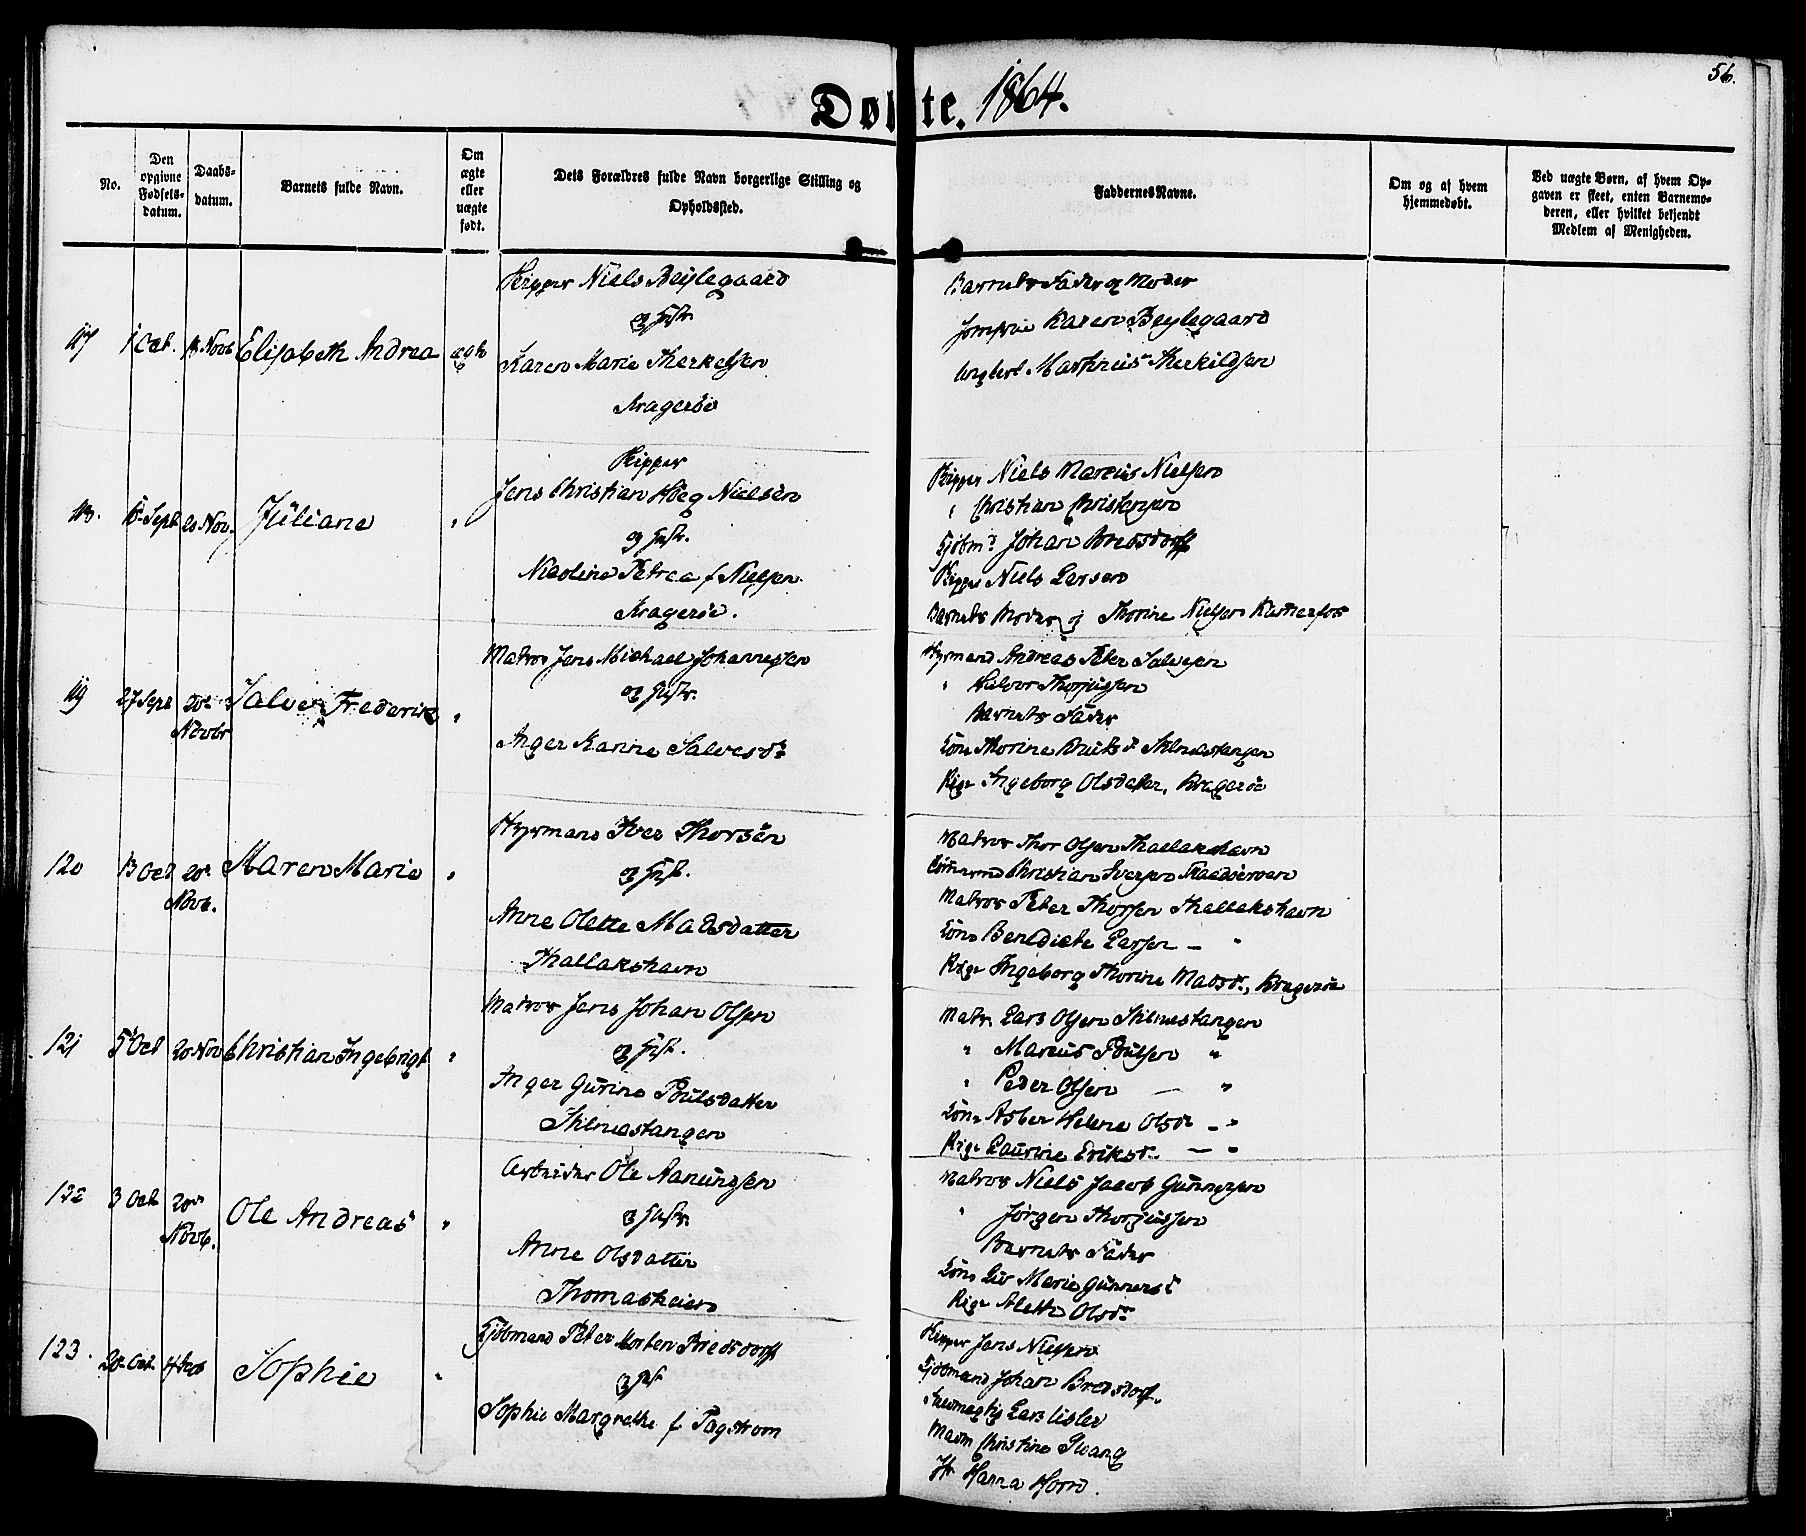 56.
Døbte. 1864.
No.
Den opgivne Fødselsdatum.
Daabsdatum.
Barnets fulde Navn.
Om ægte eller uægte født.
Dets Forældres fulde Navn borgerlige Stilling og Opholdssted.
Faddernes Navne.
Om og af hvem hjemmedøbt.
Ved uægte Børn, af hvem Opgaven er skeet, enten Barnemoderen, eller hvilket bekjendt Medlem af Menigheden.
117 1 Oct. Novb Elisabeth Andrea ægte
Skipper Niels Beylegaard
og Hustr.
Karen Marie Therkelsen
Kragerøe
Barnets Fader og Moder
Jomfrue Karen Beylegaard
Ungkarl Martinius Therkildsen
118. Sept 20 Nov. Juliane "
Skipper
Jens Christian Høeg Nielsen
og Hustr.
Nicoline Petrea f Nielsen
Kragerøe.
Skipper Niels Marcus Nielsen
" Christian Christensen
Kjøbmd Johan Bredsdorff
Skipper Niels Larsen
Barnets Moder og Thorine Nielsen
119 27 Sept 20de Novbr Salve Frederik "
Matros Jens Michael Johannesen
og Hustr.
Inger Karine Salvesdr
Styrmand Andreas Peter Salvesen
" Halvor Thorjussen
Barnets Fader
Kone Thorine Stilnestangen
Pige Ingeborg Olsdatter, Kragerøe
120 13 Oct 20de Novb. Maren Marie "
Styrmand Iver Thorsen
og Hust.
Anne Olette Madsdatter
Thallakshavn
Matros Thor Olsen Thallakshavn
Christian Iversen
Matros Peter Thorsen Thallakshavn
Kone Benedicte Larsen — "
Pige Ingeborg Thorine Madsdr., Kragerøe
121 5 Oct 20 Nov Christian Ingebrigt "
Matros Jens Johan Olsen
og Hust.
Inger Gurine Poulsdatter
Stilnestangen
Matr. Lars Olsen Stilnestangen
" Marcus Poulsen "
" Peder Olsen — "
Kone Asber Helene Olsdr — "
Pige Laurine Eriksdr. — "
122 3 Oct 20de Novb. Ole Andreas "
Arbeider Ole Aanundsen
og Hustr.
Anne Olsdatter
Thomasheien
Matros Niels Jacob Gunnersen
" Jørgen Thorjussen
Barnets Fader
Kone Liv Marie Gunnersd
Pige Alette Olsdr
123. Oct. 4 Sophie "
Kjøbmand Peter Morten Bredsdorff
og Hust
Sophie Margrethe f Fagstrom
Skipper Jens Nielsen
Kjøbmand Johan Bredsdorf.
Lars Lisler
Madm Christine Svang
Jfr Hanna Horn.